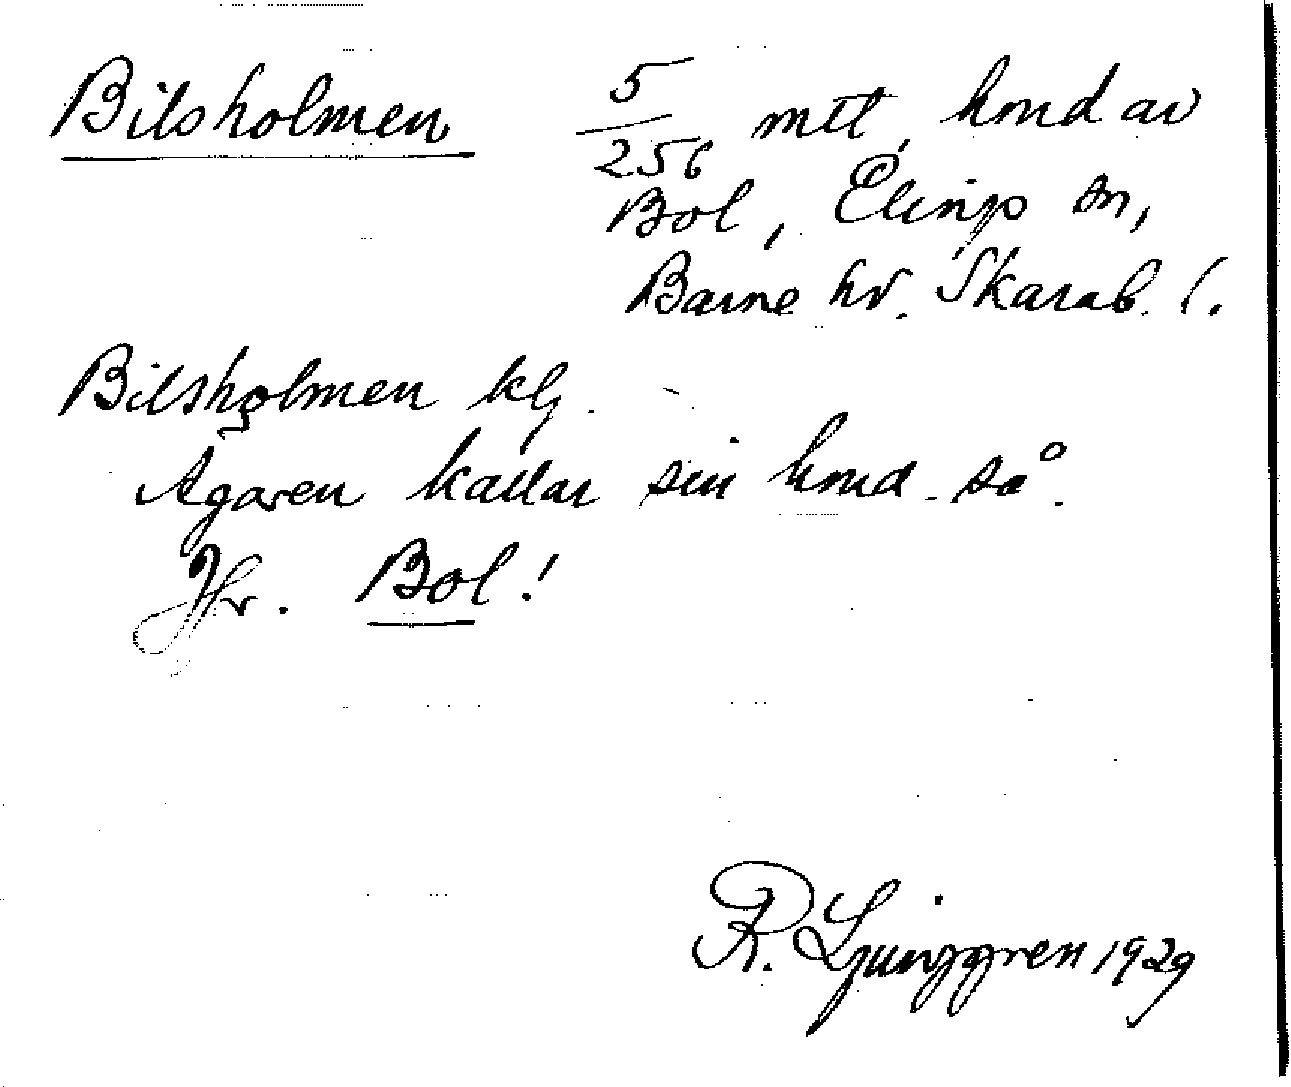 Bilsholmen 5/256 mtl, hmd av
Bol, Elings sn,
Barne hd. Skarab. l.
Bilsholmen klg.
Ägaren kallar sin hmd. så.
Jfr. Bol!
R. Ljunggren 1929